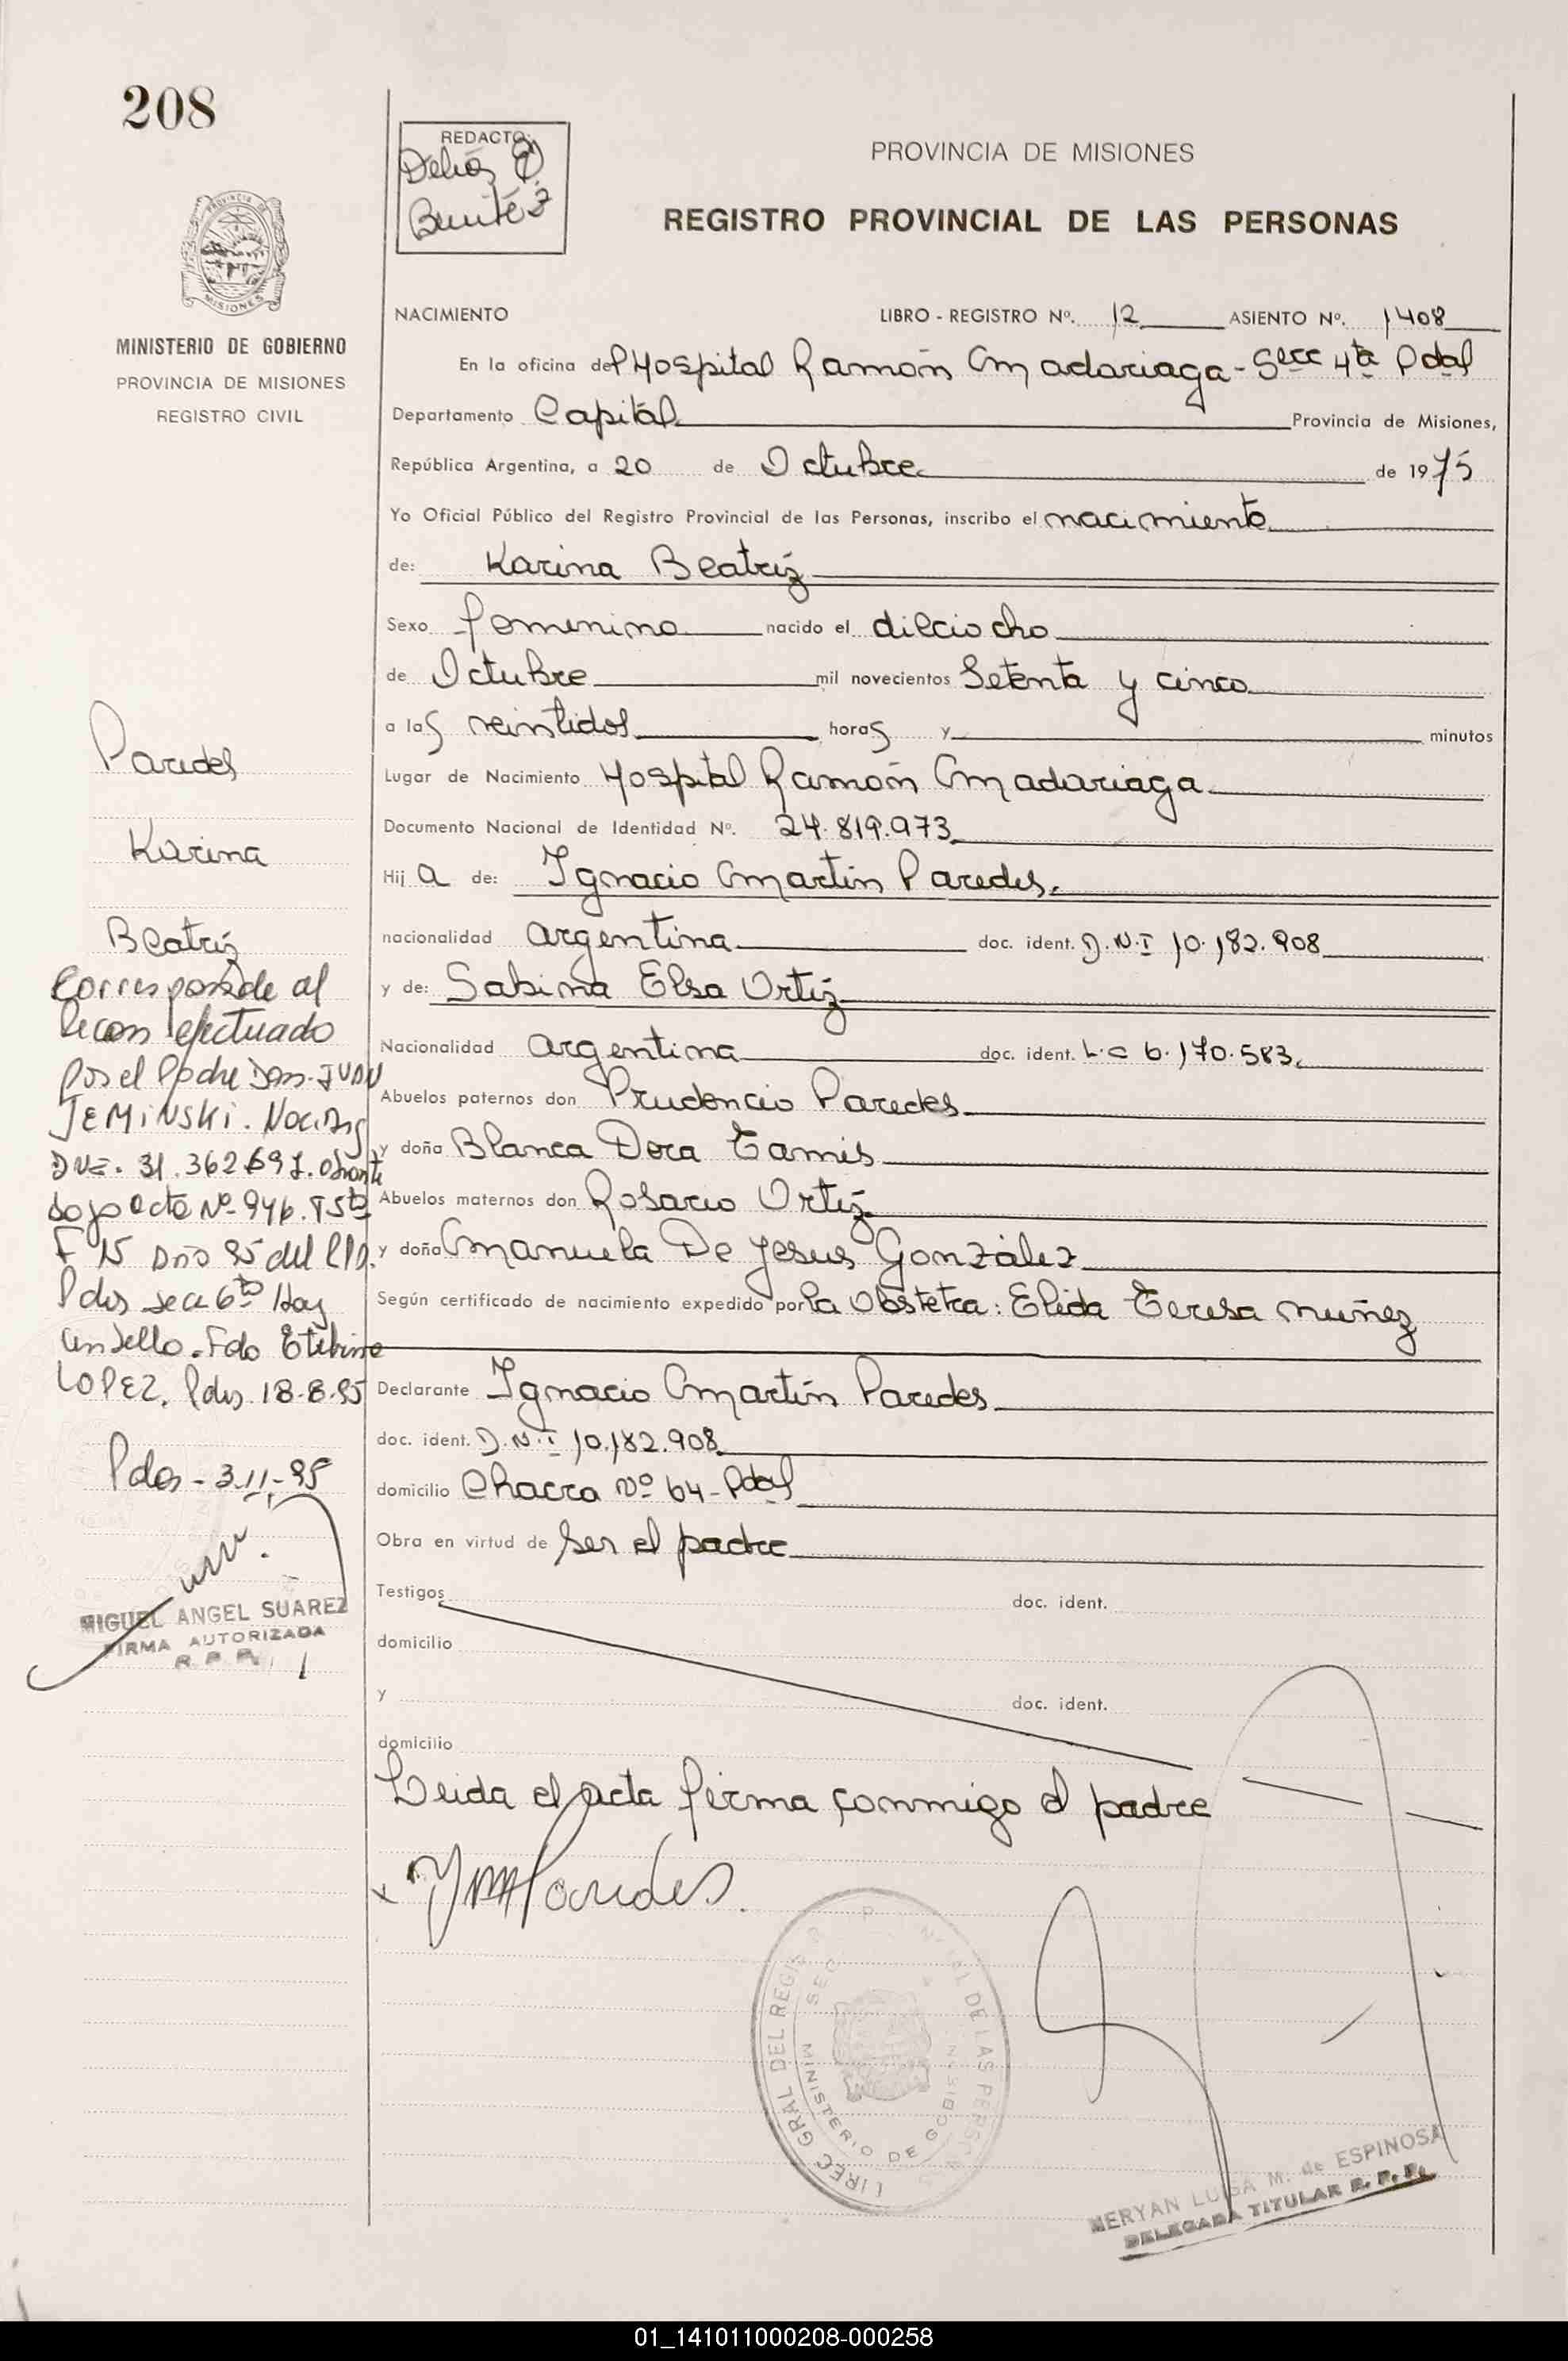 208
REDACTO:
Delia E.
Benitez
PROVINCIA DE MISIONES
REGISTRO PROVINCIAL DE LAS PERSONAS
MISIONES
MINISTERIO DE GOBIERNO
PROVINCIA DE MISIONES
REGISTRO CIVIL
NACIMIENTO LIBRO - REGISTRO Nº. 12 ASIENTO Nº. 1408
En la oficina del Hospital Ramón Madariaga - Secc 4ta Pdas
Departamento Capital Provincia de Misiones,
República Argentina, a 20 de Octubre de 1975
Yo Oficial Público del Registro Provincial de las Personas, inscribo el nacimiento
de: Karina Beatriz
Sexo femenino nacido el dieciocho
de Octubre mil novecientos Setenta y cinco
a las veintidos horas y minutos
Lugar de Nacimiento Hospital Ramón Madariaga
Documento Nacional de Identidad Nº. 24.819.973
Hija de: Ignacio Martín Paredes.
nacionalidad argentina doc. ident. D.N.I 10.182.908
y de: Sabina Elsa Ortiz
Nacionalidad argentina doc. ident. L.C 6.170.583
Abuelos paternos don Prudencio Paredes
y doña Blanca Dora Tamis
Abuelos maternos don Rosario Ortiz
y doña Manuela De Jesus González
Según certificado de nacimiento expedido por la Obstetra: Elida Teresa Nuñez
Declarante Ignacio Martín Paredes
doc. ident. D.N.I 10.182.908
domicilio Chacra Nº 64 - Pdas
Obra en virtud de ser el padre
Testigos doc. ident.
domicilio
y doc. ident.
domicilio
Leida el acta firma conmigo el padre
x Paredes
DIREC GRAL DEL REGIS DE LAS PERS
MINISTERIO DE GOBIERN
MERYAN LUISA M. de ESPINOSA
DELEGADA TITULAR R. P. P.
Paredes
Karina
Beatriz
Corresponde al
Recon efectuado
por el Padre Don JUAN
JEMINSKI. Nac. Arg
DNI. 31.362.697. obrante
bajo acta Nº 946. T 5to
F 15 Año 95 del
Pdas secc 6ta Hay
un sello. Fdo
LOPEZ. Pdas. 18-8-95
Pdas - 3-11-95
MIGUEL ANGEL SUAREZ
FIRMA AUTORIZADA
R. P. P.
01_141011000208-000258